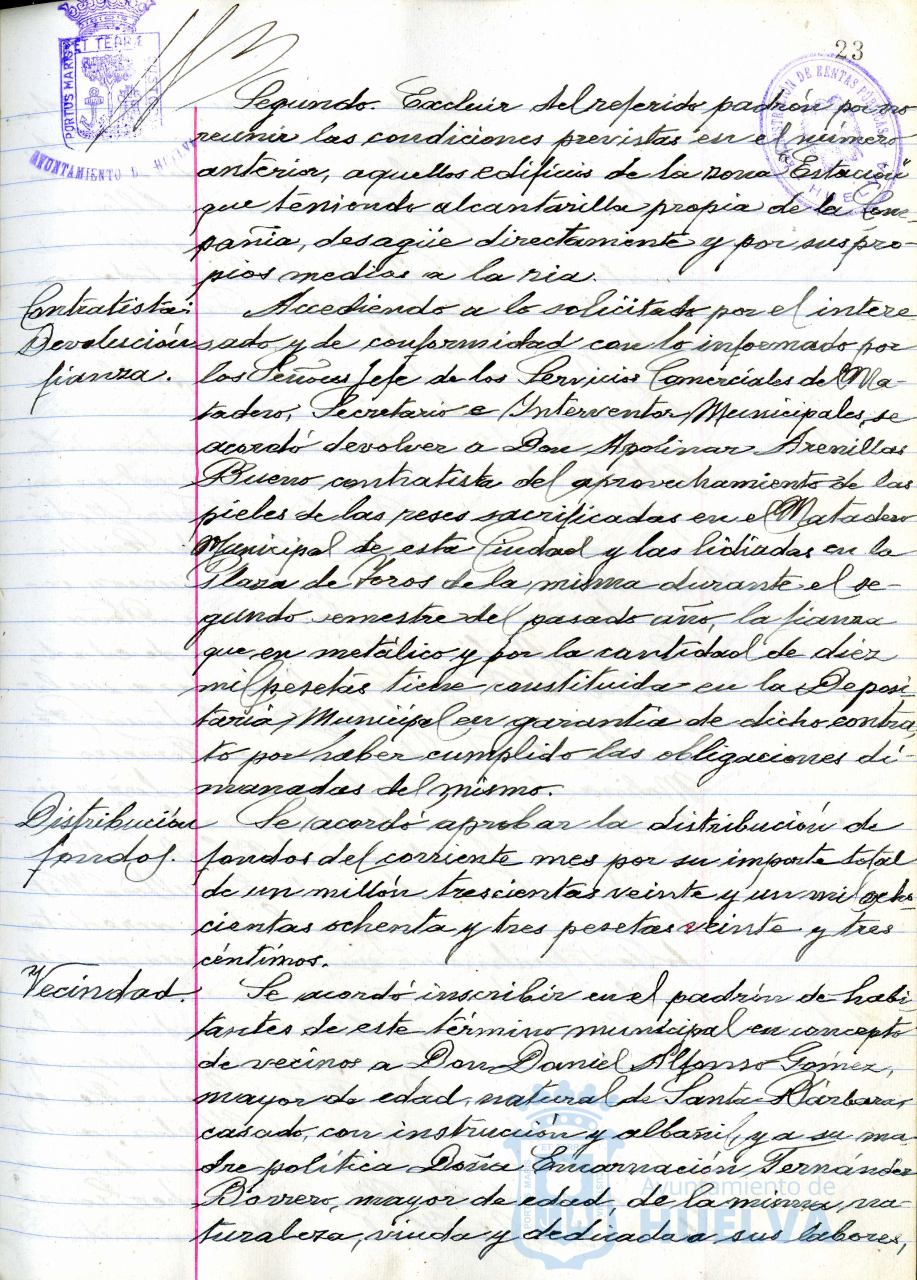 23
PORTUS MARIS ET TERRÆ CUSTODIA
AYUNTAMIENTO DE HUELVA
ADMINISTRACION DE RENTAS PUBLICAS
HUELVA
Segundo. Excluir del referido padrón por no
reunir las condiciones previstas en el número
anterior, aquellos edificios de la zona Estación
que teniendo alcantarilla propia de la Com-
pañia, desagüe directamente y por sus pro-
pios medios a la ria.
Contratista:
Devolución
fianza.
Accediendo a lo solicitado por el intere-
sado y de conformidad con lo informado por
los Señores Jefe de los Servicios Comerciales del Ma-
tadero, Secretario e Interventor Municipales, se
acordó devolver a Don Apolinar Arenillas
Bueno contratista del aprovechamiento de las
pieles de las reses sacrificadas en el Matadero
Municipal de esta Ciudad y las lidiadas en la
Plaza de Toros de la misma durante el se-
gundo semestre del pasado año, la fianza
que en metálico y por la cantidad de diez
mil pesetas tiene constituida en la Deposi-
taria Municipal en garantia de dicho contra
to por haber cumplido las obligaciones di-
manadas del mismo.
Distribución
fondos.
Se acordó aprobar la distribución de
fondos del corriente mes por su importe total
de un millón trescientas veinte y un mil ocho
cientas ochenta y tres pesetas veinte y tres
céntimos.
Vecindad.
Se acordó inscribir en el padrón de habi-
tantes de este término municipal en concepto
de vecinos a Don Daniel Alfonso Gómez,
mayor de edad, natural de Santa Bárbara,
casado, con instrucción y albañil, y a su ma-
dre política Doña Encarnación Fernández
Borrero, mayor de edad, de la misma na-
turaleza, viuda y dedicada a sus labores,
Ayuntamiento de
HUELVA